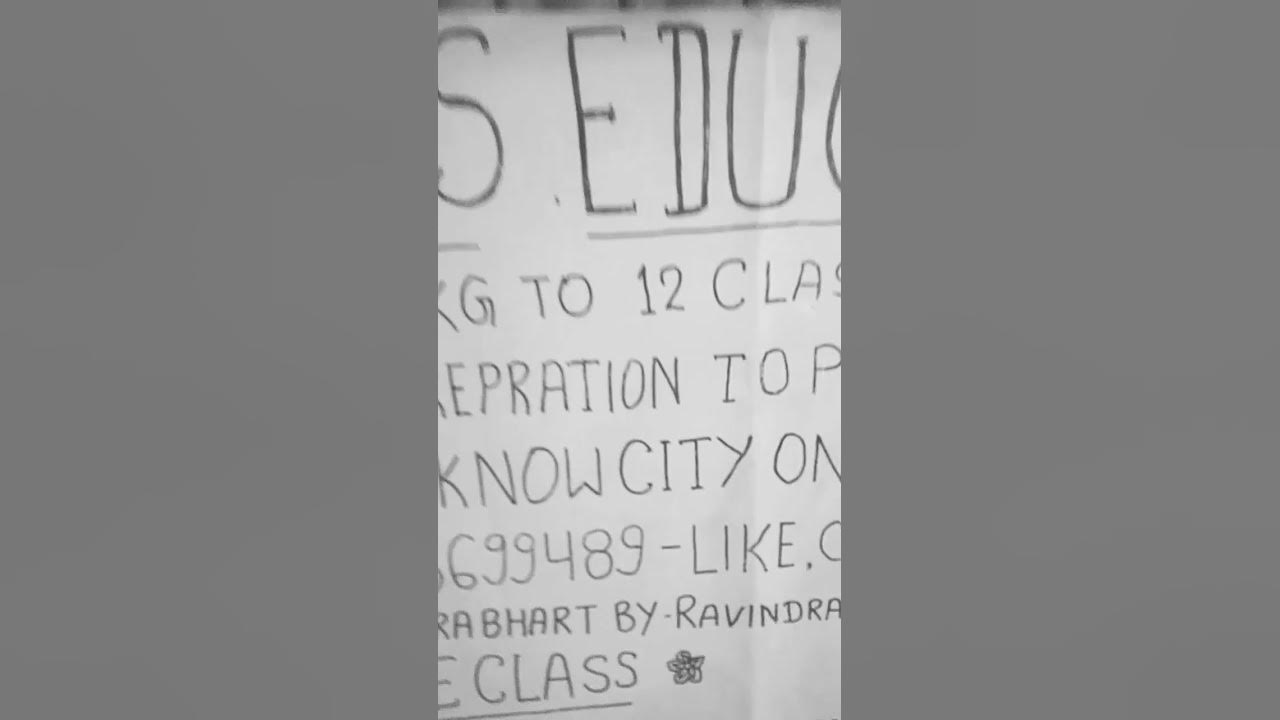 S. EDUC
KG TO 12 CLAS
REPRATION TO P
KNOW CITY ON
6699489-LIKE.C
RABHART BY-RAVINDRA
E CLASS